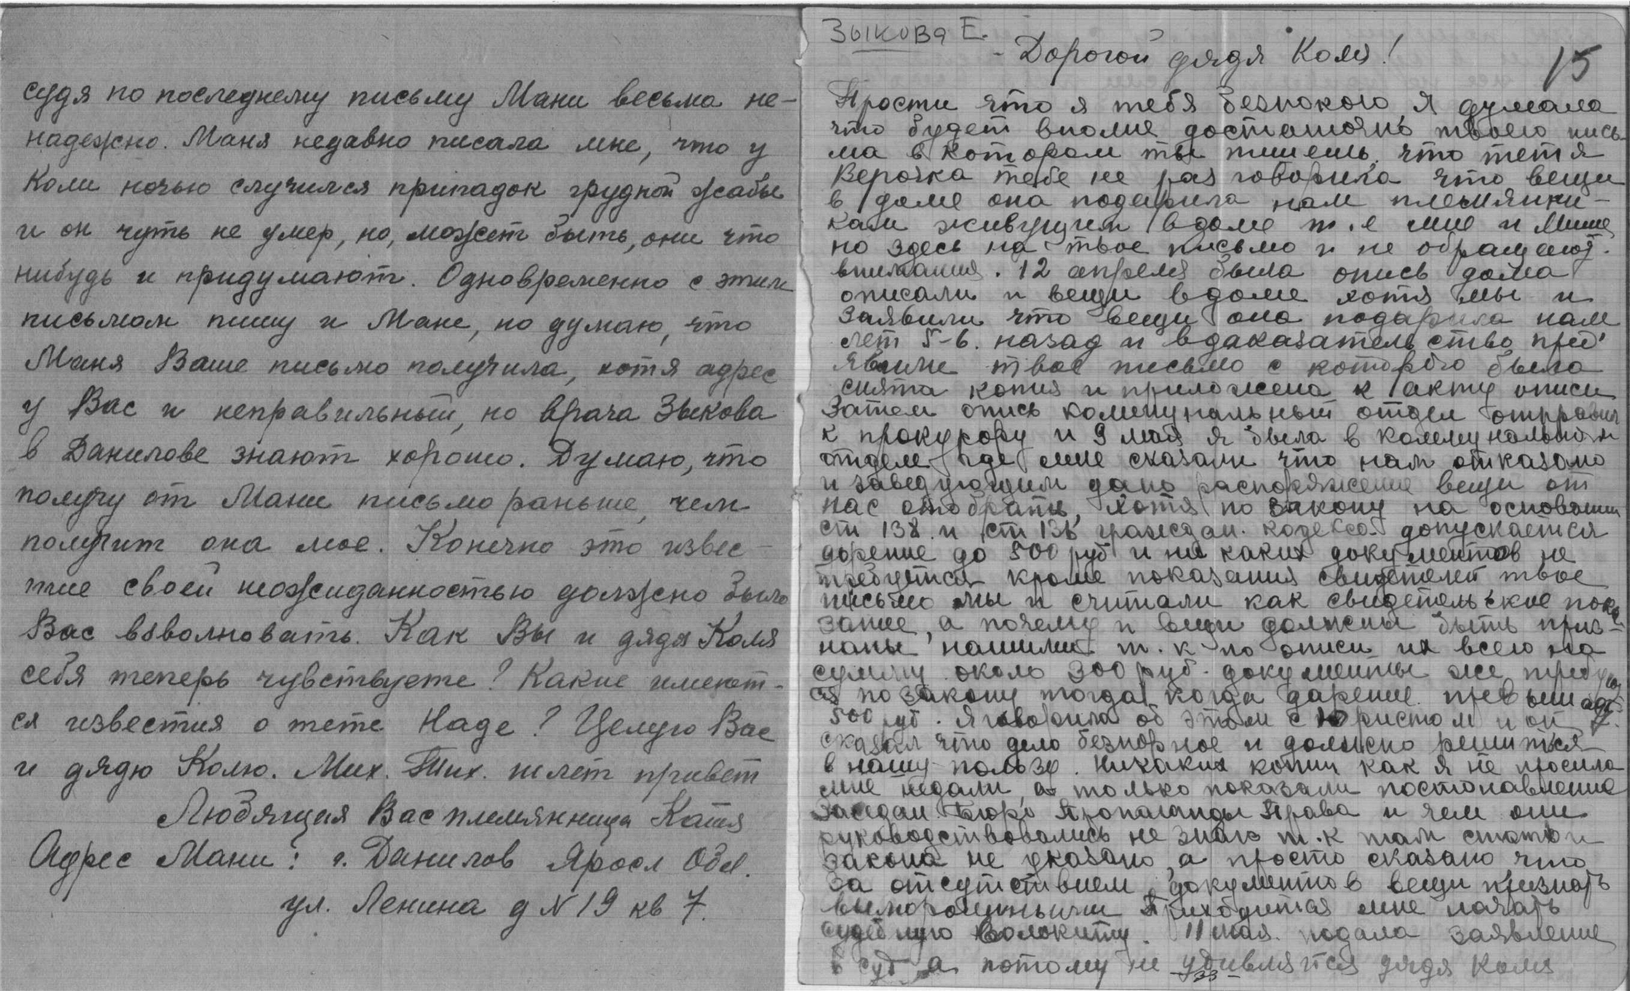 судя по последнему письму Мани весьма не-
надежно. Маня недавно писала мне, что у
Коли ночью случился припадок грудной жабы
и он чуть не умер, но, может быть, они что
нибудь и придумают. Одновременно с этим
письмом пишу и Мане, но думаю, что
Маня Ваше письмо получила, хотя адрес
у Вас и неправильный, но врача Зыкова
в Данилове знают хорошо. Думаю, что
получу от Мани письмо раньше, чем
получит она мое. Конечно это извес-
тие своей неожиданностью должно было
Вас взволновать. Как Вы и дядя Коля
себя теперь чувствуете? Какие имеют-
ся известия о тете Наде? Целую Вас
и дядю Колю. Мих. Тих. шлет привет
Любящая Вас племянница Катя
Адрес Мани: г. Данилов Яросл Обл.
ул. Ленина д N 19 кв 7.
Зыкова Е.
15
- Дорогой дядя Коля!
Прости что я тебя безпокою я думала
что будет вполне достаточно твоего пись
ма в котором ты пишешь. что тетя
Верочка тебе не раз говорила что вещи
в доме она подарила нам племянни-
кам живущим в доме т. е мне и Мише
но здесь на твое письмо и не обращают.
внимания. 12 апреля была опись дома
описали и вещи в доме хотя мы и
заявили что вещи она подарила нам
лет 5-6. назад и в даказательство пред'
явили твое письмо с которого была
снята копия и приложена к акту описи
Затем опись коммунальный отдел отправил
к прокурору и 9 мая я была в коммунальном
отделе где мне сказали что нам отказано
и заведующим дано распоряжение вещи от
нас отобрать, хотя по закону на основании
ст 138. и ст 136 граждан. кодекса допускается
дарение до 500 руб и ни каких документов не
требуется кроме показания свидетелей твое
письмо мы и считали как свидетельское пока
зание, а почему и вещи должны быть приз-
наны нашими т. к по описи их всего на
сумму около 300 руб. документы же требу
ся по закону тогда когда дарение превышает
500 руб. Я говорила об этом с юристом и он
сказал что дело безпорное и должно решиться
в нашу пользу. Никаких копий как я не просила
мне недали, а только показали постоновление
заседан Бюро Пропаганды Права и чем они
руководствовались не знаю т. к там статьи
закона не указано, а просто сказано что
за отсутствием документов вещи признать
выморочными Приходится мне начать
судебную волокиту. 11 мая. подала заявление
в суд а потому не удивляйся дядя Коля